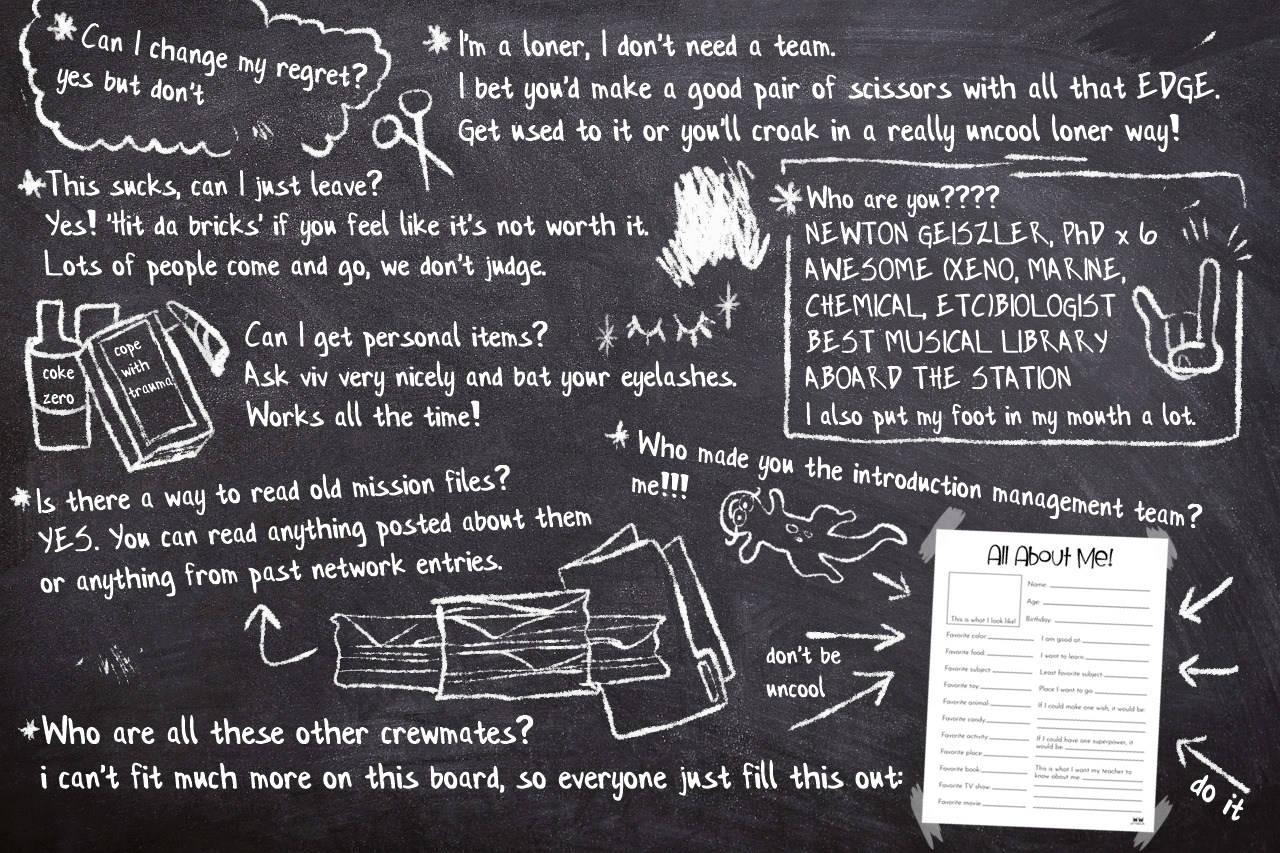 * Can I change my regret?
yes but don't
* I'm a loner, I don't need a team.
I bet you'd make a good pair of scissors with all that EDGE.
Get used to it or you'll croak in a really uncool loner way!
* This sucks, can I just leave?
Yes! 'Hit da bricks' if you feel like it's not worth it.
Lots of people come and go, we don't judge.
* Who are you????
NEWTON GEISZLER, PhD x 6
AWESOME (XENO, MARINE,
CHEMICAL, ETC)BIOLOGIST
BEST MUSICAL LIBRARY
ABOARD THE STATION
I also put my foot in my mouth a lot.
coke
zero
cope
with
trauma
* Can I get personal items?
Ask viv very nicely and bat your eyelashes.
Works all the time!
* Who made you the introduction management team?
me!!!
* Is there a way to read old mission files?
YES. You can read anything posted about them
or anything from past network entries.
don't be
uncool
* Who are all these other crewmates?
i can't fit much more on this board, so everyone just fill this out:
All About Me!
This is what I look like!
Name:
Age:
Birthday:
Favorite color:
Favorite food:
Favorite subject:
Favorite toy:
Favorite animal:
Favorite candy:
Favorite activity:
Favorite place:
Favorite book:
Favorite TV show:
Favorite movie:
I am good at:
I want to learn:
Least favorite subject:
Place I want to go:
If I could make one wish, it would be:
If I could have one superpower, it
would be:
This is what I want my teacher to
know about me:
do it